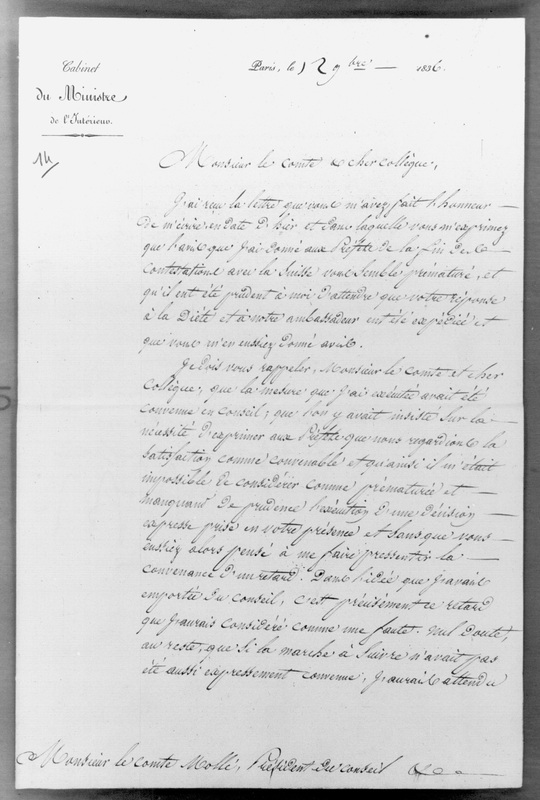 Cabinet
du Ministre
de l'Intérieur.
Paris, le 12 9bre 1836.
14
Monsieur le comte & cher collègue,
J'ai reçu la lettre que vous m'avez fait l'honneur
de m'écrire en date d'hier et dans laquelle vous m'exprimez
que l'avis que j'ai donné aux Préfets de la fin de
contestations avec la Suisse vous semble prématuré, et
qu'il eut été prudent à moi d'attendre que votre réponse
à la Diète et à notre ambassadeur eut été expédiée et
que vous m'en eussiez donné avis.
Je dois vous rappeler, Monsieur le comte et cher
collègue, que la mesure que j'ai exécutée avait été
convenue en conseil; que l'on y avait insisté sur la
nécessité d'exprimer aux Préfets que nous regardions la
satisfaction comme convenable et qu'ainsi il m'était
impossible de considérer comme prématurée et
manquant de prudence l'exécution d'une décision
expresse prise en votre présence et sans que vous
eussiez alors pensé à me faire pressentir la
convenance d'un retard. Dans l'idée que j'avais
emportée du conseil, c'est précisément ce retard
que j'aurais considéré comme une faute. Nul doute,
au reste, que si la marche à suivre n'avait pas
été aussi expressement convenue, j'aurais attendu
Monsieur le comte Mollé, Président du conseil &c
5